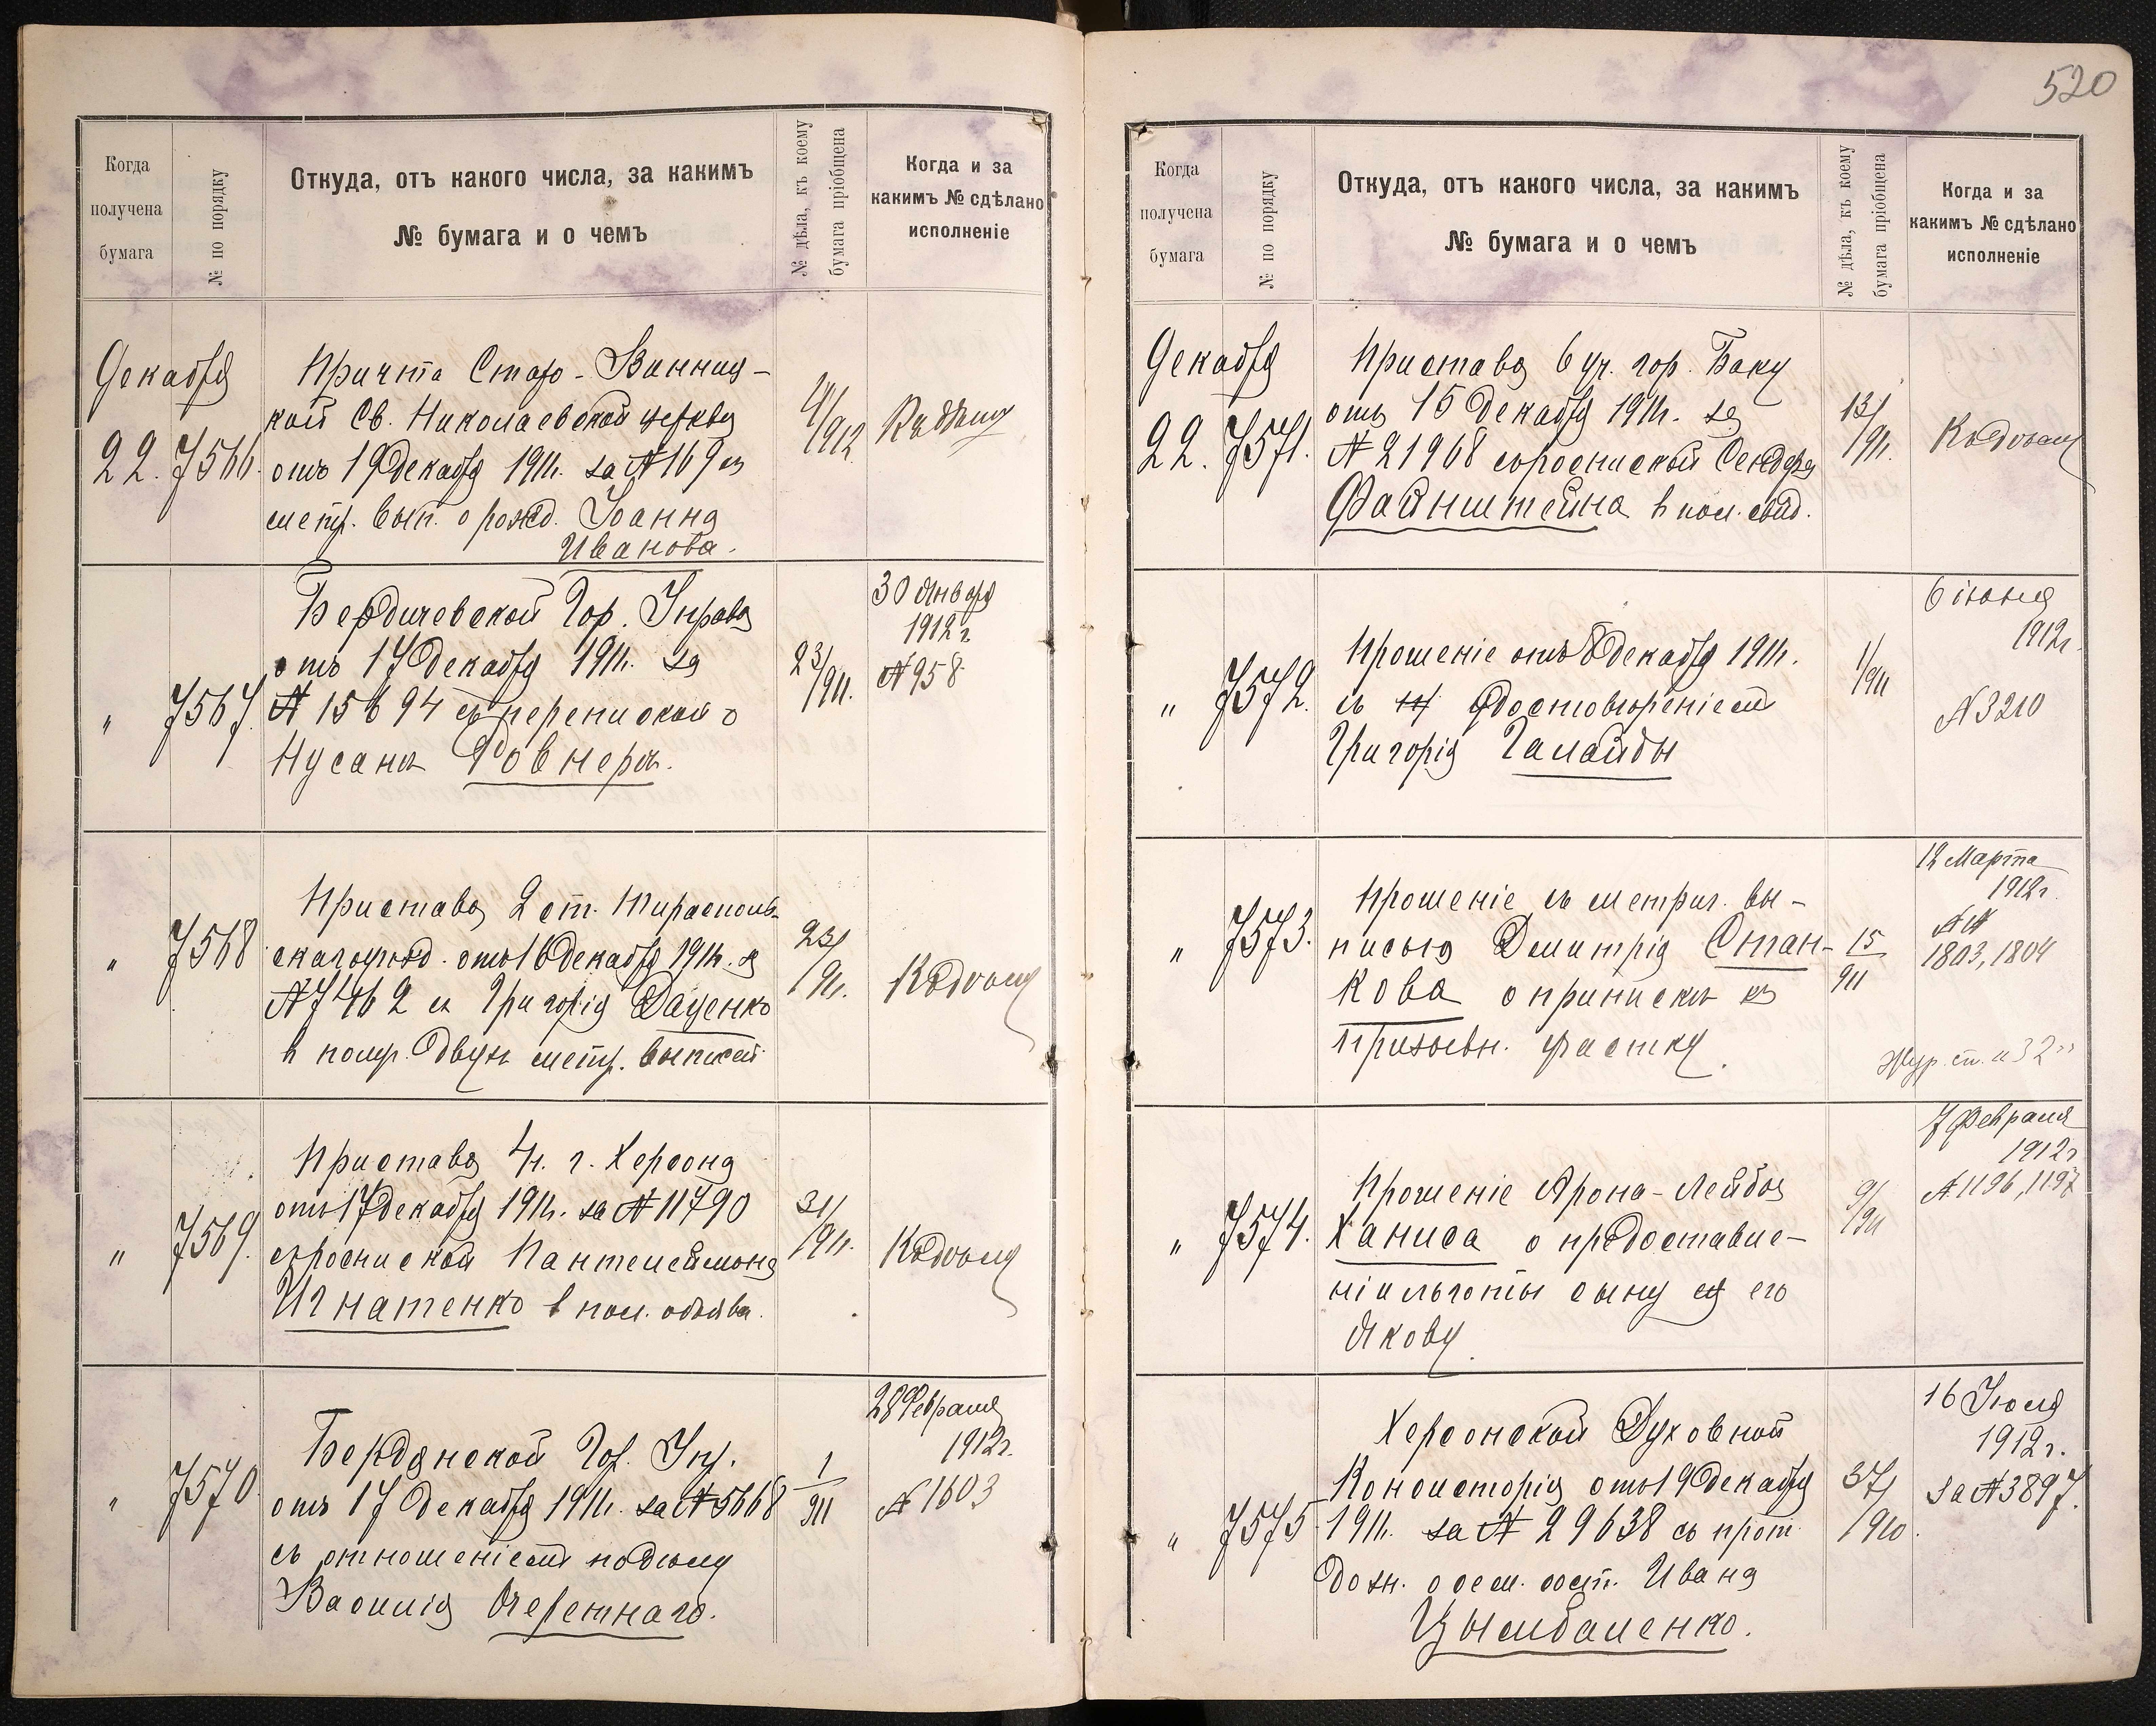 520
Когда
получена
бумага
№ по порядку
Откуда, отъ какого числа, за какимъ
№ бумага и о чемъ
№ дѣла, къ коему
бумага пріобщена
Когда и за
какимъ № сдѣлано
исполненіе
Декабря
22. 7566.
Причта Старо-Винниц-
кой Св. Николаевской церкви
отъ 19 Декабря 1911г. за № 169 съ
метр. вып. о рожд. Іоанна
Иванова.
4/912
Къ дѣлу
" 7567.
Бердичевской Гор. Управы
отъ 17 Декабря 1911г. за
№ 15694 съ перепиской о
Нусанѣ Ровнерѣ.
23/911.
30 Января
1912 г.
№ 958
" 7568
Пристава 2 ст. Тирасполь-
скаго уѣзд. отъ 16 Декабря 1911г. за
№ 7462 съ Григорія Даценко
в получ. двухъ метр. выписей
23/911.
Къ дѣлу
" 7569.
Пристава 4 ч. г. Херсона
отъ 17 Декабря 1911г. за № 11790
съ роспиской Пантелеймона
Игнатенко в пол. объявл.
31/911.
Къ дѣлу
" 7570
Бердянской Гор. Упр.
отъ 17 Декабря 1911г. за № 5668
съ отношеніемъ по дѣлу
Василія Очеретнаго.
1/911
28 Февраля
1912г.
№ 1603
Когда
получена
бумага
№ по порядку
Откуда, отъ какого числа, за какимъ
№ бумага и о чемъ
№ дѣла, къ коему
бумага пріобщена
Когда и за
какимъ № сдѣлано
исполненіе
Декабря
22. 7571.
Пристава 6 уч. гор. Баку
отъ 15 Декабря 1911г. за
№ 21968 съ роспиской Сендера
Файнштейна в пол. свид.
13/911.
Къ дѣлу
" 7572.
Прошеніе отъ 8 Декабря 1911г.
съ удостовѣреніемъ
Григорія Галайды
1/911
6 іюня
1912г.
№ 3210
" 7573.
Прошеніе съ метрич. вы-
писью Димитрія Стан-
кова о припискѣ къ
призывн. участку.
15/911
12 Марта
1912г.
№№
1803, 1804
Жур. ст. 32
" 7574.
Прошеніе Арона-Лейбы
Ханиса о предоставле-
ніи льготы сыну его
Якову.
9/911
7 Февраля
1912г
№ 1196, 1197
" 7575
Херсонской Духовной
Консисторіи отъ 19 Декабря
1911г. за № 29638 съ прот.
дозн. о сем. сост. Ивана
Цымбаленко.
37/910.
16 Іюля
1912г.
за № 3897.